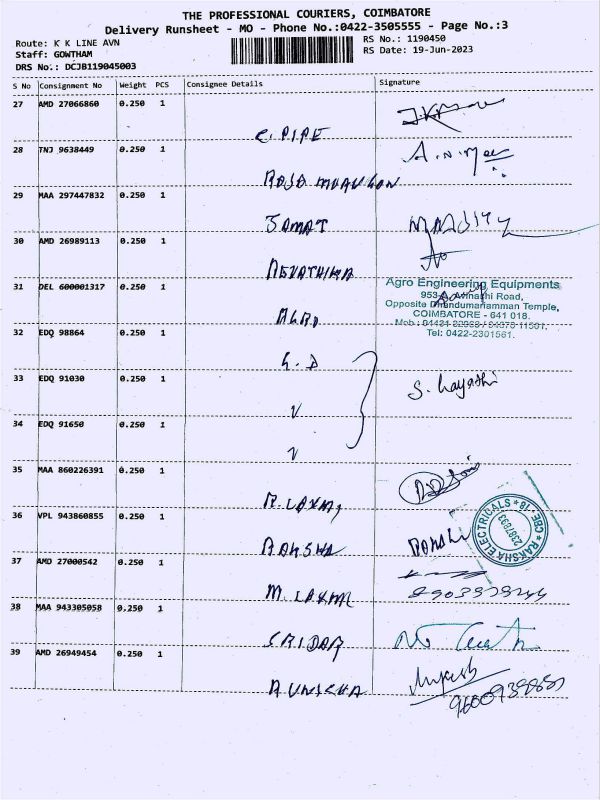 THE PROFESSIONAL COURIERS, COIMBATORE
Delivery Runsheet - MO - Phone No.:0422-3505555 - Page No.:3
Route: K K LINE AVN
RS No.: 1190450
Staff: GOWTHAM
RS Date: 19-Jun-2023
DRS No.: DCJB119045003
S No Consignment No Weight PCS Consignee Details Signature
27 AMD 27066860 0.250 1
C. PIPE
28 TNJ 9638449 0.250 1
A.N.
29 MAA 297447832 0.250 1
30 AMD 26989113 0.250 1
REVATHIKA
31 DEL 600001317 0.250 1
AGRO
Agro Engineering Equipments
Avinashi Road,
Opposite Dhandumariamman Temple,
COIMBATORE - 641 018.
Tel: 0422-2301561.
32 EDQ 98864 0.250 1
G.D
33 EDQ 91030 0.250 1
S. Gayathri
34 EDQ 91650 0.250 1
35 MAA 860226391 0.250 1
R. LAXMI
36 VPL 943860855 0.250 1
RAKSHA
RAKSHA ELECTRICALS * CBE-18 *
2387833
37 AMD 27000542 0.250 1
M. LAXMI
38 MAA 943305058 0.250 1
SRIDAR
39 AMD 26949454 0.250 1
Mukesh